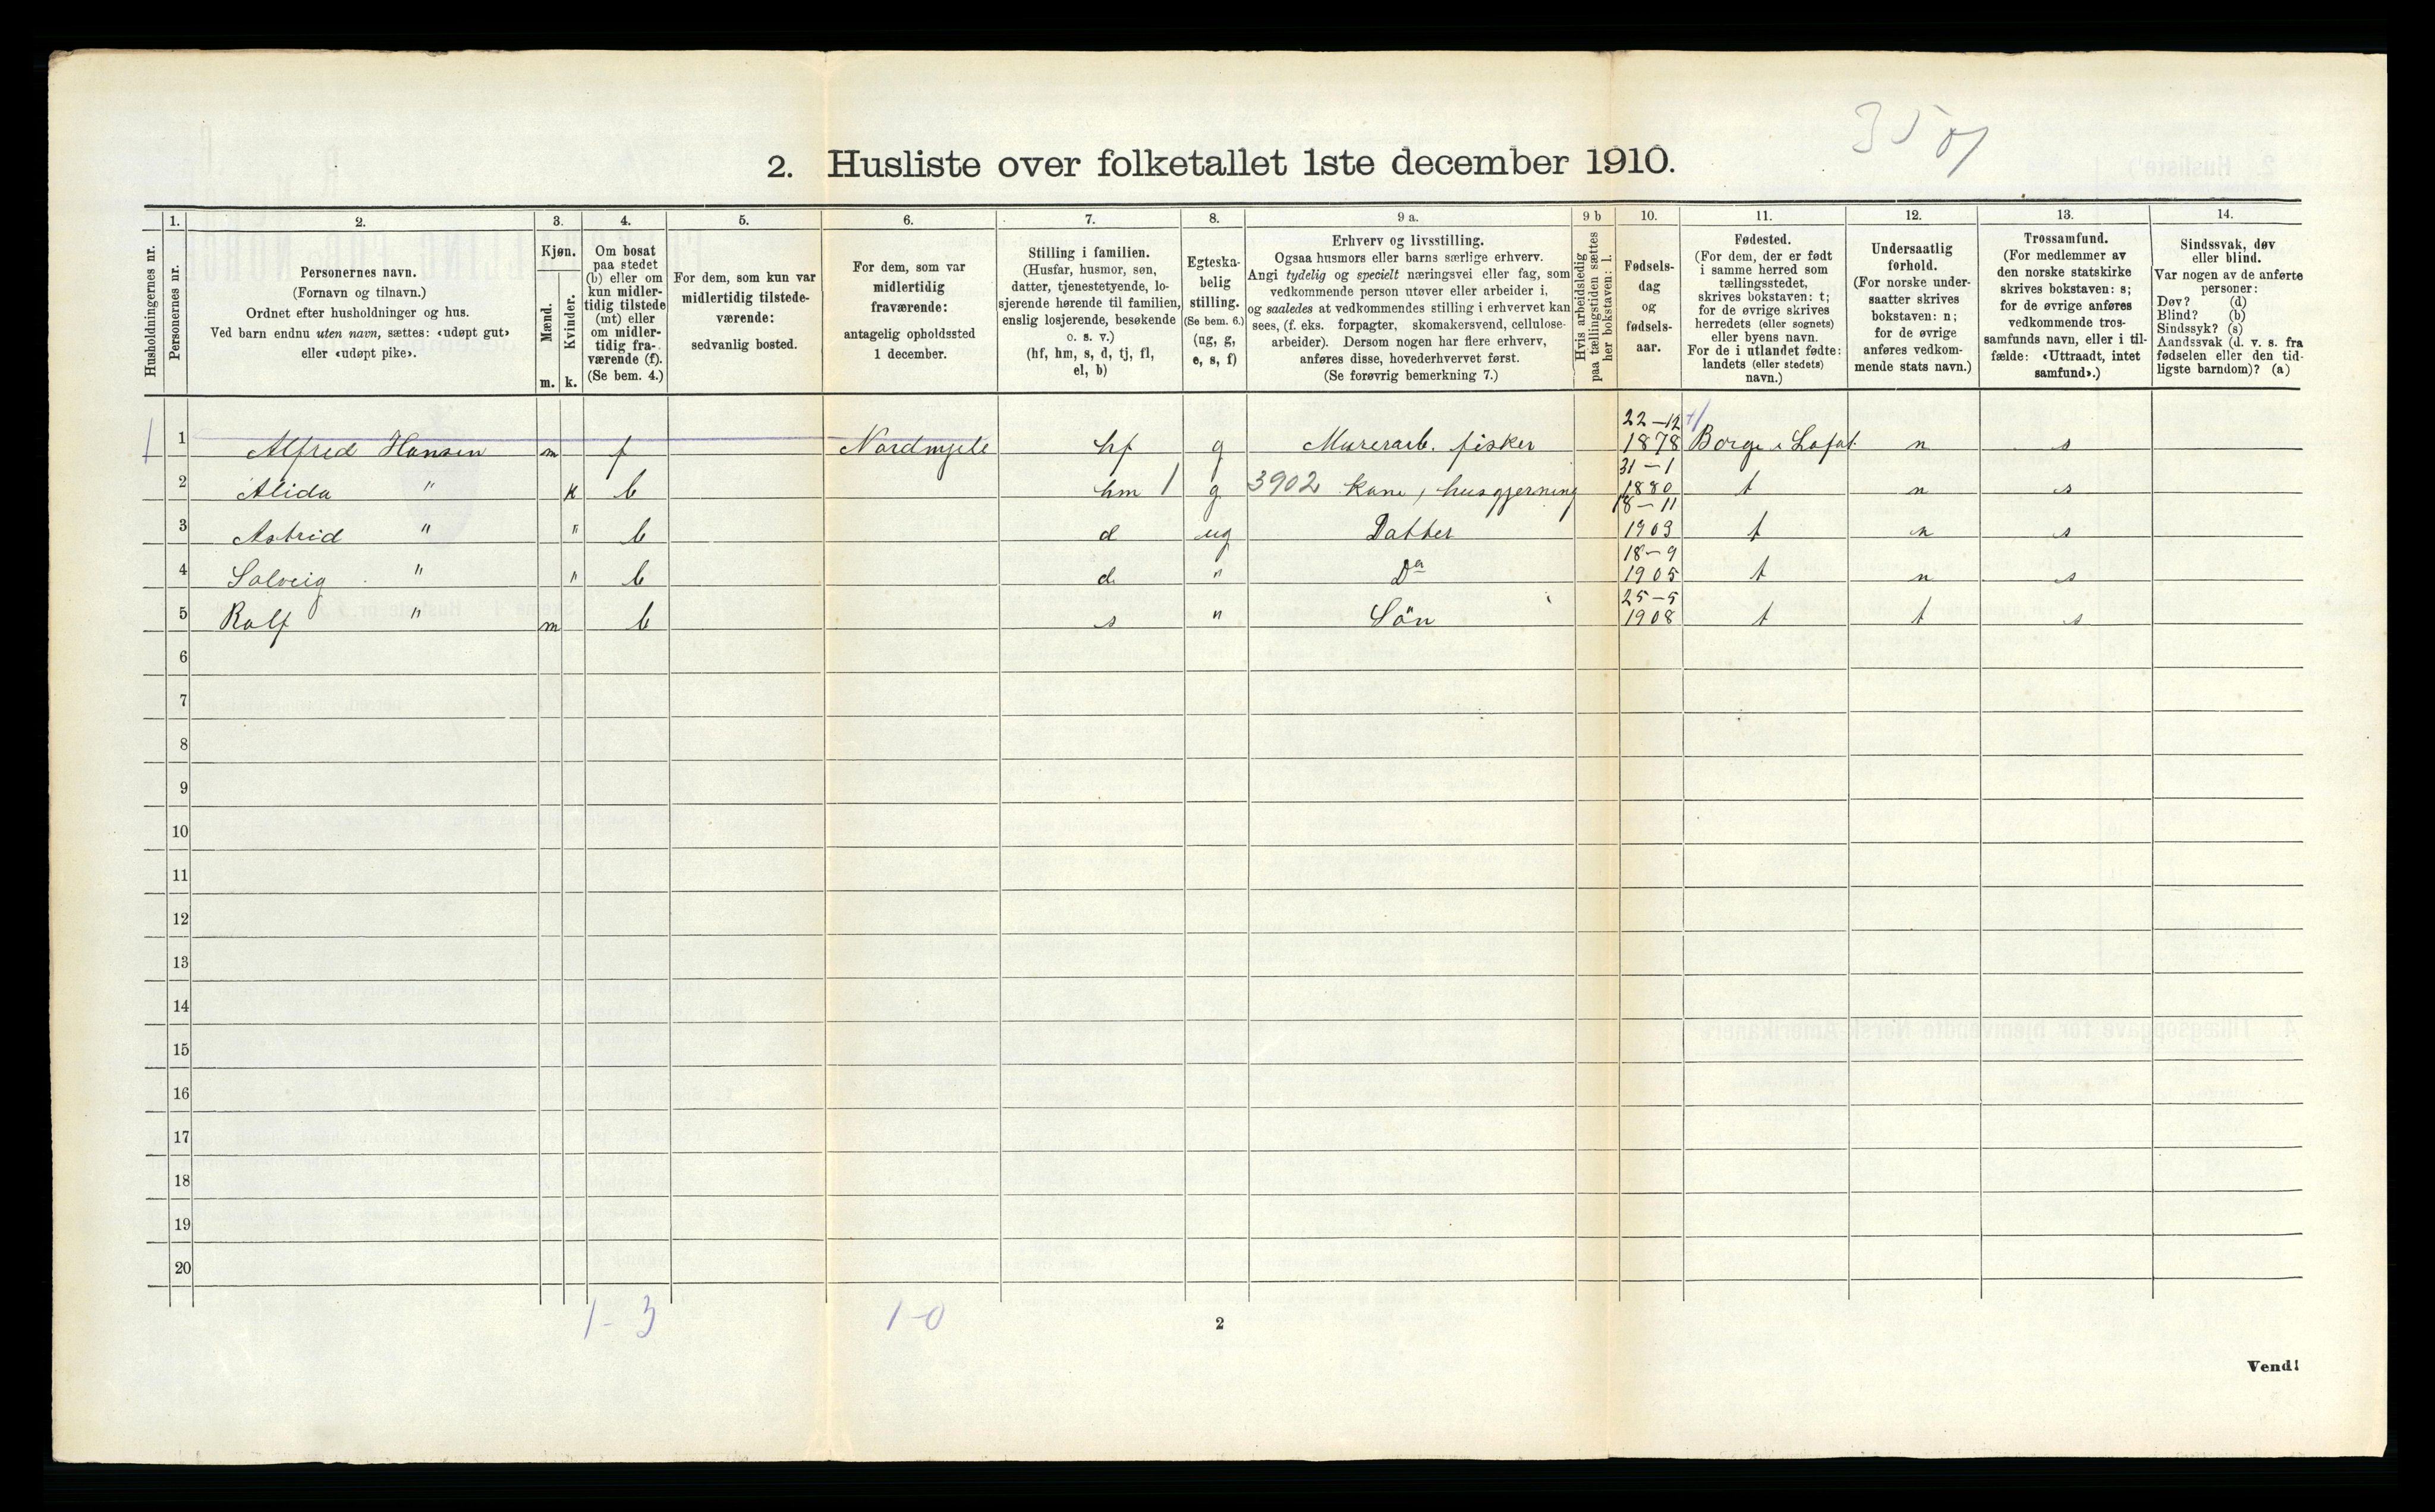 35
2. Husliste over folketallet 1ste december 1910.
1. 2. 3. 4. 5. 6. 7. 8. 9 a. 9 b 10. 11. 12. 13. 14.
Husholdningernes nr.
Personernes nr.
Personernes navn.
(Fornavn og tilnavn.)
Ordnet efter husholdninger og hus.
Ved barn endnu uten navn, sættes: «udøpt gut»
eller «udøpt pike».
Kjøn.
Mænd.
Kvinder.
m. k.
Om bosat
paa stedet
(b) eller om
kun midler-
tidig tilstede
(mt) eller
om midler-
tidig fra-
værende (f).
(Se bem. 4.)
For dem, som kun var
midlertidig tilstede-
værende:
sedvanlig bosted.
For dem, som var
midlertidig
fraværende:
antagelig opholdssted
1 december.
Stilling i familien.
(Husfar, husmor, søn,
datter, tjenestetyende, lo-
sjerende hørende til familien,
enslig losjerende, besøkende
o. s. v.)
(hf, hm, s, d, tj, fl,
el, b)
Egteska-
belig
stilling.
(Se bem. 6.)
(ug, g,
e, s, f)
Erhverv og livsstilling.
Ogsaa husmors eller barns særlige erhverv.
Angi tydelig og specielt næringsvei eller fag, som
vedkommende person utøver eller arbeider i,
og saaledes at vedkommendes stilling i erhvervet kan
sees, (f. eks. forpagter, skomakersvend, cellulose-
arbeider). Dersom nogen har flere erhverv,
anføres disse, hovederhvervet først.
(Se forøvrig bemerkning 7.)
Hvis arbeidsledig
paa tællingstiden sættes
her bokstaven: l.
Fødsels-
dag
og
fødsels-
aar.
Fødested.
(For dem, der er født
i samme herred som
tællingsstedet,
skrives bokstaven: t;
for de øvrige skrives
herredets (eller sognets)
eller byens navn.
For de i utlandet fødte:
landets (eller stedets)
navn.)
Undersaatlig
forhold.
(For norske under-
saatter skrives
bokstaven: n;
for de øvrige
anføres vedkom-
mende stats navn.)
Trossamfund.
(For medlemmer av
den norske statskirke
skrives bokstaven: s;
for de øvrige anføres
vedkommende tros-
samfunds navn, eller i til-
fælde: «Uttraadt, intet
samfund».)
Sindssvak, døv
eller blind.
Var nogen av de anførte
personer:
Døv? (d)
Blind? (b)
Sindssyk? (s)
Aandssvak (d. v. s. fra
fødselen eller den tid-
ligste barndom)? (a)
1 1 Alfred Hansen m f Nordmjele hf g Murerarb. fisker 22-12 1878 Borge i Lofot. n s
2 Alida " k b hm 1 g 3902 kone, husgjerning 31-1 1880 t n s
3 Astrid " " b d ug Datter 18-11 1903 t n s
4 Solveig " " b d " Do 18-9 1905 t n s
5 Rolf " m b s " Sön 25-5 1908 t t s
6
7
8
9
10
11
12
13
14
15
16
17
18
19
20
1-3 1-0
2
Vend!